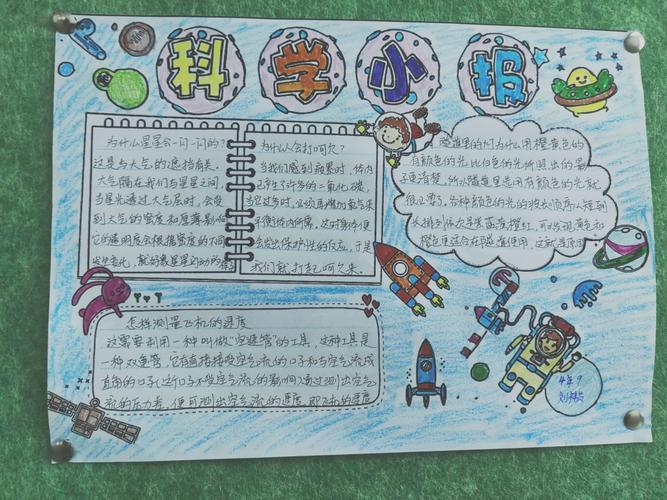 科学小报
为什么星星会一闪一闪的?
这是与大气的遮挡有关。
大气隔在我们与星星之间,
当星光透过大气层时,会受
到大气的密度和厚薄影响
它的透明度会根据密度的不同
发生变化,就好象星星闪动的样子
为什么人会打呵欠?
当我们感到疲累时,体内
已产生了许多的二氧化碳,
当它过多时,必须再增加氧气来
平衡体内所需。这时身体便
会发出保护性的反应,于是
我们就打起呵欠来。
隧道里的灯为什么用橙黄色的
有颜色的光比白色的光所照出的影
子更清楚,所以隧道里选用有颜色的光就
很必要了。各种颜色的光的波长顺序从短到
长排列依次是紫蓝绿橙红,可以发现黄色和
橙色更适合在隧道使用,这就是原因
怎样测量飞机的速度
这需要利用一种叫做“空速管”的工具,这种工具是
一种双连管,它有直接接受空气流的口子和与空气流成
直角的口子(这个口子不受空气流的影响)通过测出空气
流的压力差,便可测出空气流的速度,即飞机的速度
4年7